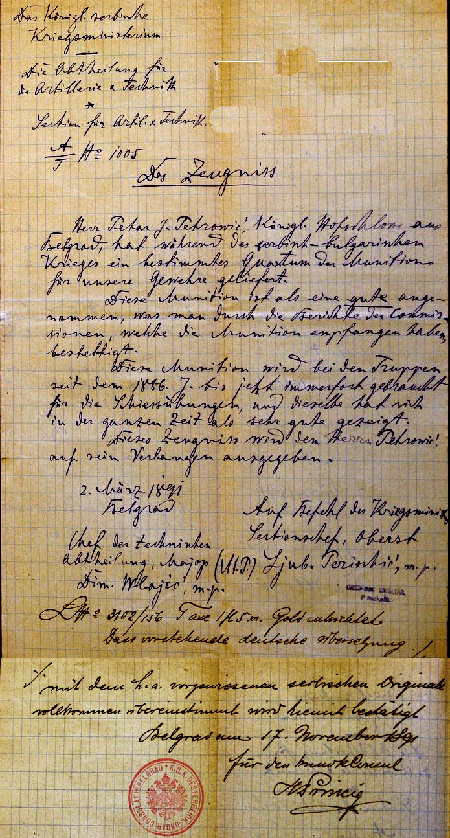 Das Königl. serbische
Kriegsministerium
Die Abtheilung für
die Artillerie & Technik
Section für Artl. & Technik.
A/T No 1005
Das Zeugniss
Herr Petar J. Petrowić, Königl. Hofschloss aus
Belgrad, hat während des serbisch-bulgarischen
Krieges ein bestimmtes Quantum der Munition
für unsere Gewehre geliefert.
Diese Munition ist als eine gute ange-
nommen, was man durch die Berichte der Commis-
sionen, welche die Munition empfangen haben,
bestettigt.
Diese Munition wird bei den Truppen
seit dem 1886. J. bis jetzt immerfort gebraucht
für die Schiessübungen, und dieselbe hat sich
in der ganzen Zeit als sehr gute gezeigt.
Dieses Zeugniss wird dem Herrn Petrowić
auf sein Verlangen ausgegeben.
2. März 1891
Belgrad
Auf Befehl des Kriegsministers
Sectionschef, Oberst
Chef der technischen
Abtheilung, Major
(M.P.) Ljub. m.p.
Dim. Wlajić, m.p.
No 3102/156 Taxe Gold
Dass vorstehende deutsche Übersetzung
mit dem h.a. vorgewiesenen serbischen Originale
vollkommen übereinstimmt wird hiemit bestätigt
Belgrad am 17. November 1891
für den Consul